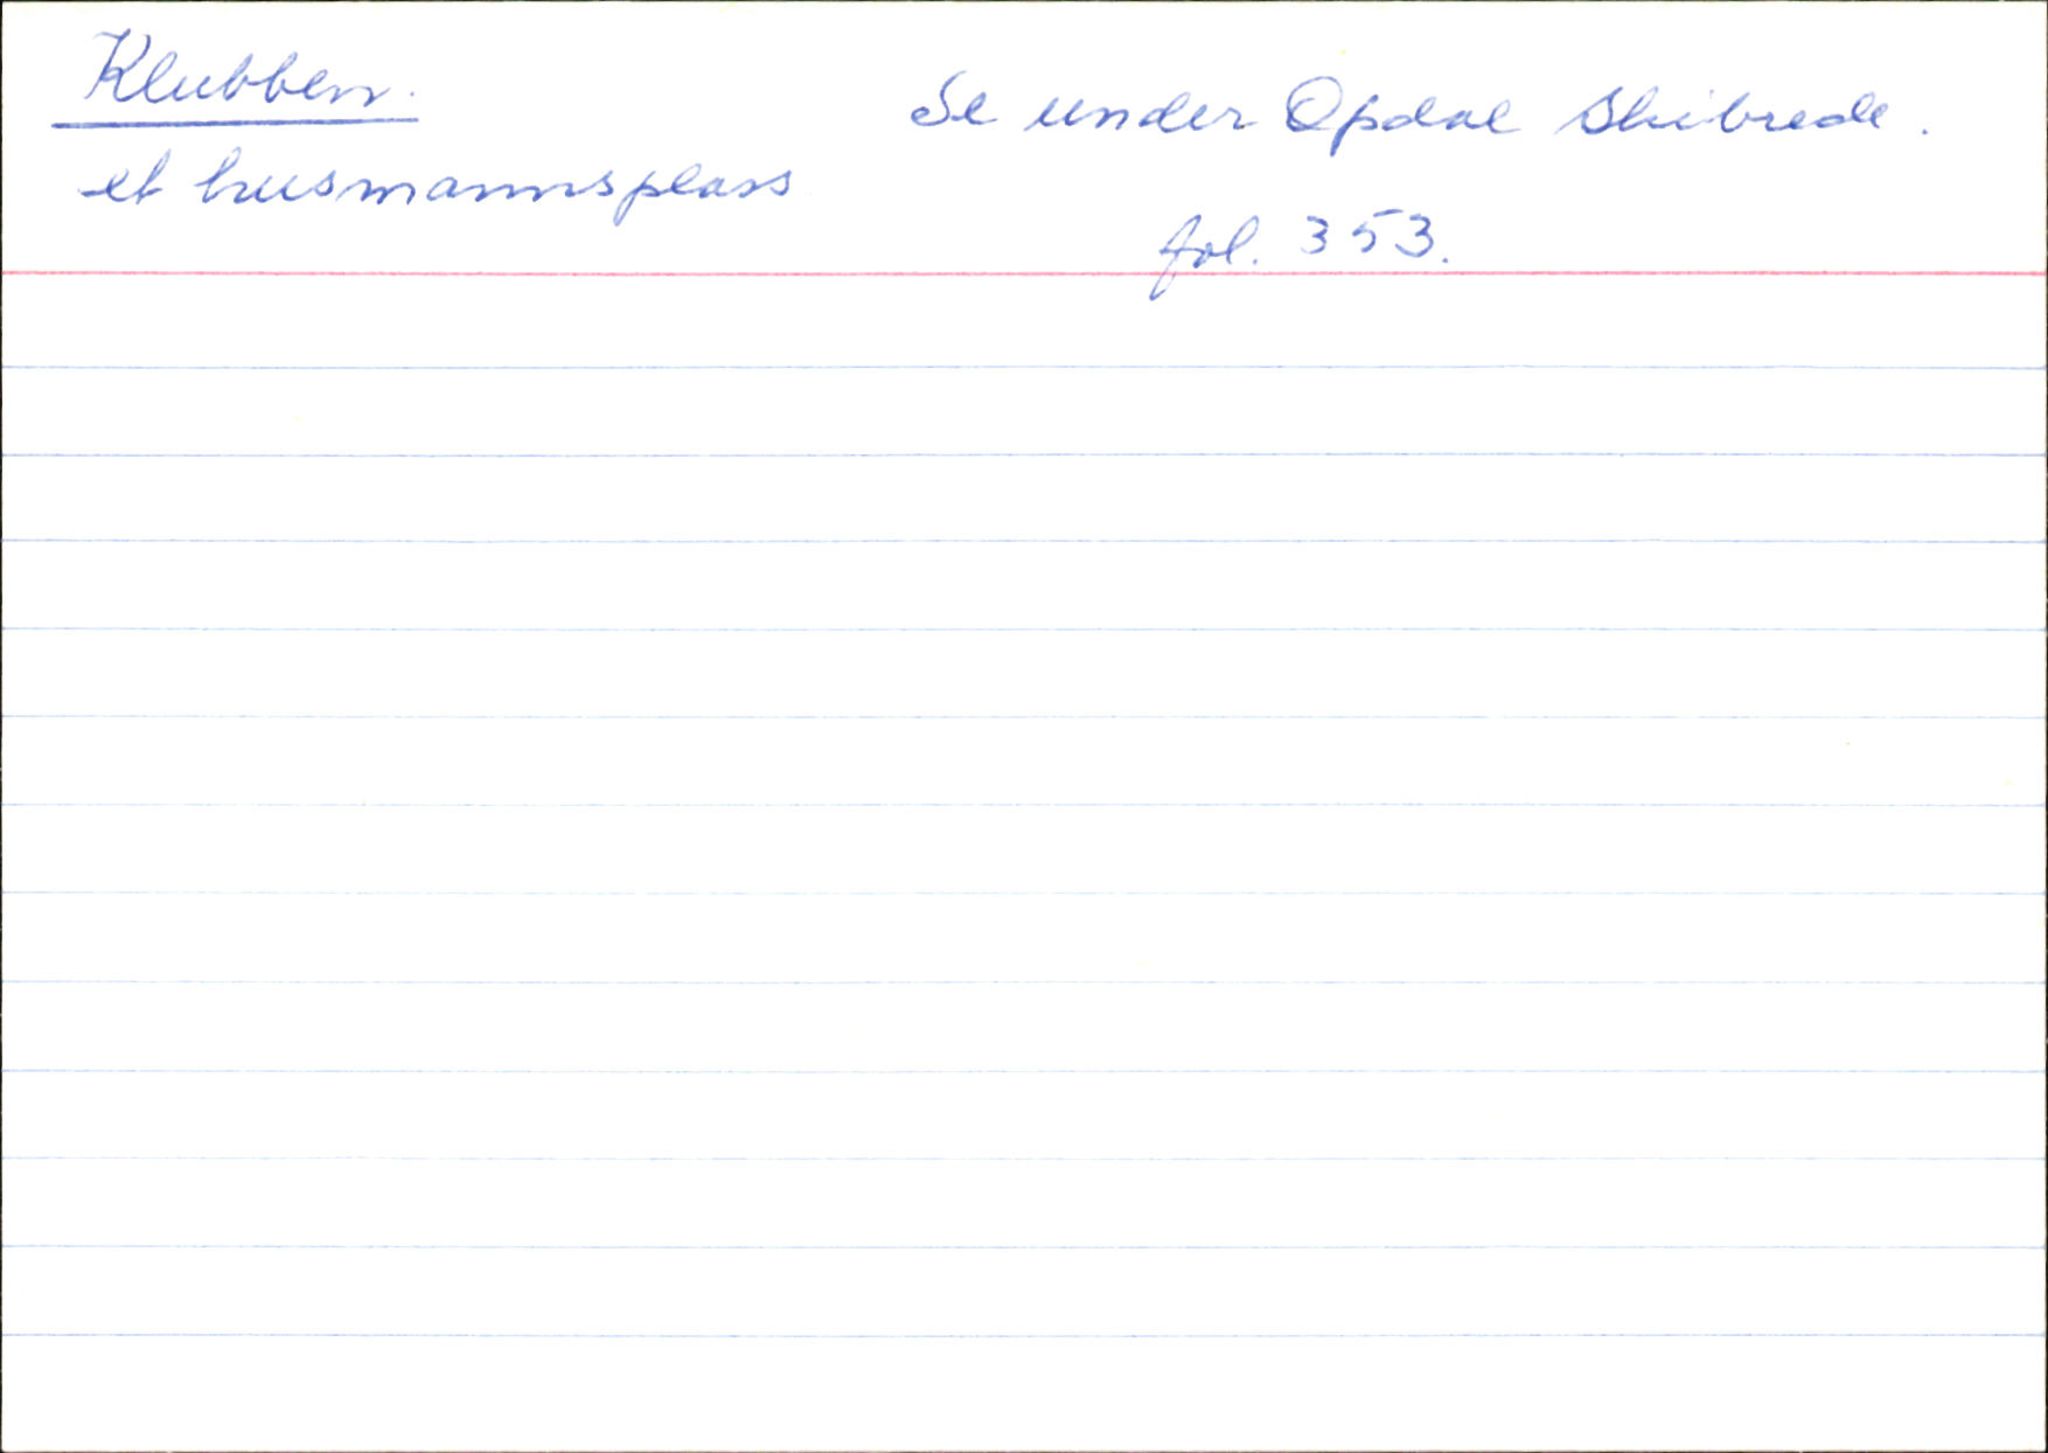 Klubben.
Se under Opdal Skibrede.
et husmannsplass
fol. 353.